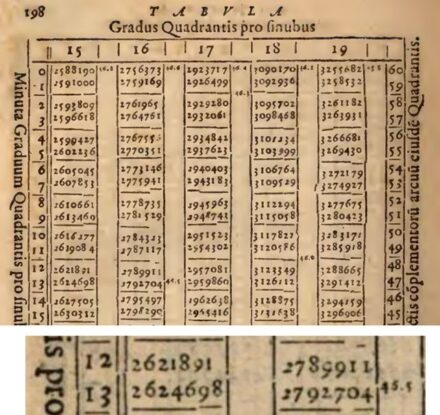 198 TABVLA
Gradus Quadrantis pro sinubus
15 16 17 18 19
Minuta Graduum Quadrantis pro sinu
0 2588190 46.8 2756373 46.6 2923717 46.4 3090170 46.1 3255682 45.8 60
1 2591000 2759169 2926499 3092936 3258532 59
46.3
2 2593809 2761965 2929280 3095702 3261182 58
3 2596618 2764761 2932061 3098468 3263931 57
4 2599427 2767556 2934842 3101234 3266681 56
5 2602236 2770351 2937623 3103999 3269430 55
6 2605045 2773146 2940403 3106764 3272179 54
7 2607853 2775941 2943183 3109529 3274927 53
8 2610661 2778735 2945963 3112294 3277675 52
9 2613460 2781529 2948742 3115058 3280423 51
10 2616277 2784323 2951523 3117822 3283171 50
11 2619084 2787117 2954302 3120586 3285918 49
46.0
12 2621891 2789911 2957081 3123349 3288665 48
13 2624698 2792704 46.5 2959860 3126112 3291412 47
14 2627505 2795497 2962638 3128875 3294159 46
15 2630312 2798290 2965416 3131638 3296906 45
ctis cōplementorū arcuū eiusdē Quadrantis.
is pro
12 2621891 2789911
13 2624698 2792704 46.5